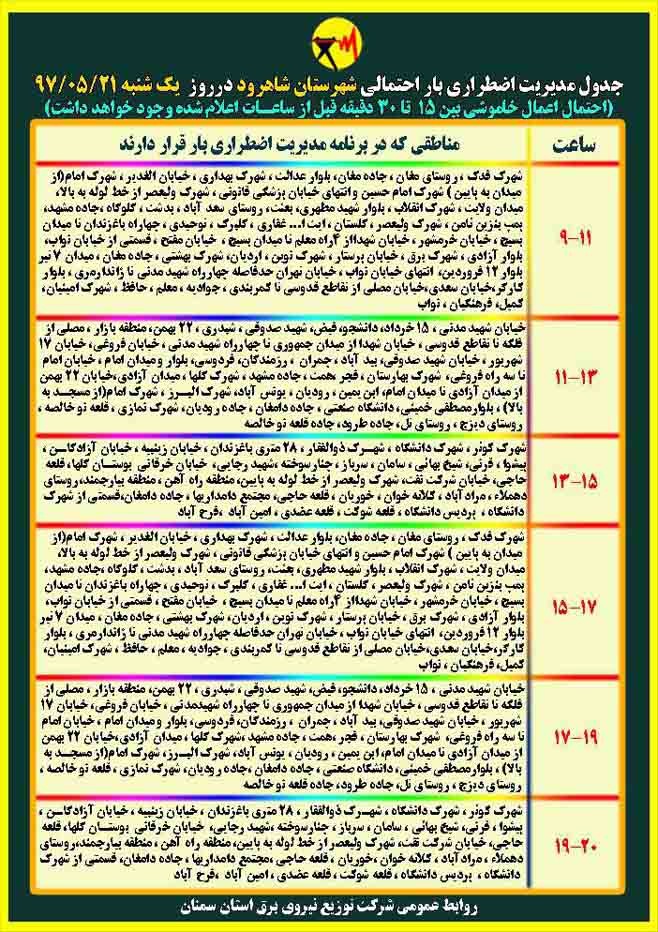 جدول مدیریت اضطراری بار احتمالی شهرستان شاهرود درروز یک شنبه ۹۷/۰۵/۲۱
(احتمال اعمال خاموشی بین ۱۵ تا ۳۰ دقیقه قبل از ساعات اعلام شده وجود خواهد داشت)
ساعت
مناطقی که در برنامه مدیریت اضطراری بار قرار دارند
۹-۱۱
شهرک فدک ، روستای مغان ، جاده مغان، بلوار عدالت ، شهرک بهداری ، خیابان الغدیر ، شهرک امام(از
میدان به پایین ) شهرک امام حسین و انتهای خیابان پزشکی قانونی ، شهرک ولیعصر از خط لوله به بالا،
میدان ولایت ، شهرک انقلاب ، بلوار شهید مطهری، بعثت، روستای سعد آباد ، بدشت ، کلوکاه ،جاده مشهد،
پمپ بنزین ثامن ، شهرک ولیعصر ، گلستان ، آیت ا... غفاری ، گلبرک ، توحیدی ، چهاراه باغزندان تا میدان
بسیج ، خیابان خرمشهر ، خیابان شهدااز ۴راه معلم تا میدان بسیج ، خیابان مفتح ، قسمتی از خیابان نواب،
بلوار آزادی ، شهرک برق ، خیابان پرستار ، شهرک نوین ، اردیان ، شهرک بهشتی ، جاده مغان ، میدان ۷ تیر
بلوار ۱۲ فروردین، انتهای خیابان نواب ، خیابان تهران حدفاصله چهارراه شهید مدنی تا ژاندارمری ، بلوار
کارگر،خیابان سعدی،خیابان مصلی از تقاطع قدوسی تا کمربندی ، جوادیه ، معلم ، حافظ ، شهرک امینیان،
کمیل، فرهنگیان ، نواب
۱۱-۱۳
خیابان شهید مدنی ، ۱۵ خرداد، دانشجو، فیض، شهید صدوقی ، شیدری ، ۲۲ بهمن، منطقه بازار ، مصلی از
فلکه تا تقاطع قدوسی ، خیابان شهدا از میدان جمهوری تا چهارراه شهید مدنی ، خیابان فروغی، خیابان ۱۷
شهریور ، خیابان شهید صدوقی، بید آباد ، چمران ، رزمندگان، فردوسی، بلوار و میدان امام ، خیابان امام
تا سه راه فروغی، شهرک بهارستان ، فجر ،همت ، جاده مشهد ، شهرک گلها ، میدان آزادی،خیابان ۲۲ بهمن
از میدان آزادی تا میدان امام، ابن یمین ، رودیان ، یونس آباد، شهرک البرز ، شهرک امام(از مسجد به
بالا) ، بلوارمصطفی خمینی، دانشگاه صنعتی ، جاده دامغان ، جاده رودیان، شهرک نمازی ، قلعه نو خالصه ،
روستای دیزج ، روستای تل، جاده طرود، جاده قلعه نوخالصه
۱۳-۱۵
شهرک کوثر ، شهرک دانشگاه ، شهرک ذوالفقار ، ۲۸ متری باغزندان ، خیابان زینبیه ، خیابان آزادگان ،
پیشوا ، قرنی ، شیخ بهائی ، سامان ، سرباز ، چنارسوخته ،شهید رجایی، خیابان خرقانی بوستان گلها، قلعه
حاجی، خیابان شرکت نفت، شهرک ولیعصر از خط لوله به پایین، منطقه راه آهن ، منطقه بیارجمند،روستای
دهملاء ، مراد آباد ، کلاته خوان ، خوریان ، قلعه حاجی، مجتمع دامداریها ، جاده دامغان،قسمتی از شهرک
دانشگاه ، پردیس دانشگاه ، قلعه شوکت ، قلعه عضدی ، امین آباد ،فرح آباد
۱۵-۱۷
شهرک فدک ، روستای مغان ، جاده مغان، بلوار عدالت ، شهرک بهداری ، خیابان الغدیر ، شهرک امام(از
میدان به پایین ) شهرک امام حسین و انتهای خیابان پزشکی قانونی ، شهرک ولیعصر از خط لوله به بالا،
میدان ولایت ، شهرک انقلاب ، بلوار شهید مطهری، بعثت، روستای سعد آباد ، بدشت ، کلوکاه ،جاده مشهد،
پمپ بنزین ثامن ، شهرک ولیعصر ، گلستان ، آیت ا... غفاری ، گلبرک ، توحیدی ، چهاراه باغزندان تا میدان
بسیج ، خیابان خرمشهر ، خیابان شهدااز ۴راه معلم تا میدان بسیج ، خیابان مفتح ، قسمتی از خیابان نواب،
بلوار آزادی ، شهرک برق ، خیابان پرستار ، شهرک نوین ، اردیان ، شهرک بهشتی ، جاده مغان ، میدان ۷ تیر
بلوار ۱۲ فروردین، انتهای خیابان نواب ، خیابان تهران حدفاصله چهارراه شهید مدنی تا ژاندارمری ، بلوار
کارگر،خیابان سعدی،خیابان مصلی از تقاطع قدوسی تا کمربندی ، جوادیه ، معلم ، حافظ ، شهرک امینیان،
کمیل، فرهنگیان ، نواب
۱۷-۱۹
خیابان شهید مدنی ، ۱۵ خرداد، دانشجو، فیض، شهید صدوقی ، شیدری ، ۲۲ بهمن، منطقه بازار ، مصلی از
فلکه تا تقاطع قدوسی ، خیابان شهدا از میدان جمهوری تا چهارراه شهیدمدنی ، خیابان فروغی، خیابان ۱۷
شهریور ، خیابان شهید صدوقی، بید آباد ، چمران ، رزمندگان، فردوسی، بلوار و میدان امام ، خیابان امام
تا سه راه فروغی، شهرک بهارستان ، فجر ،همت ، جاده مشهد ، شهرک گلها ، میدان آزادی،خیابان ۲۲ بهمن
از میدان آزادی تا میدان امام، ابن یمین ، رودیان ، یونس آباد، شهرک البرز ، شهرک امام(از مسجد به
بالا) ، بلوارمصطفی خمینی، دانشگاه صنعتی ، جاده دامغان ،جاده رودیان، شهرک نمازی ، قلعه نو خالصه ،
روستای دیزج ، روستای تل، جاده طرود، جاده قلعه نوخالصه
۱۹-۲۰
شهرک کوثر ، شهرک دانشگاه ، شهرک ذوالفقار ، ۲۸ متری باغزندان ، خیابان زینبیه ، خیابان آزادگان ،
پیشوا ، قرنی ، شیخ بهائی ، سامان ، سرباز ، چنارسوخته ،شهید رجایی، خیابان خرقانی بوستان گلها، قلعه
حاجی، خیابان شرکت نفت، شهرک ولیعصر از خط لوله به پایین، منطقه راه آهن ، منطقه بیارجمند،روستای
دهملاء ، مراد آباد ، کلاته خوان ،خوریان ، قلعه حاجی ،مجتمع دامداریها ، جاده دامغان، قسمتی از شهرک
دانشگاه ، پردیس دانشگاه ، قلعه شوکت ، قلعه عضدی ، امین آباد ،فرح آباد
روابط عمومی شرکت توزیع نیروی برق استان سمنان